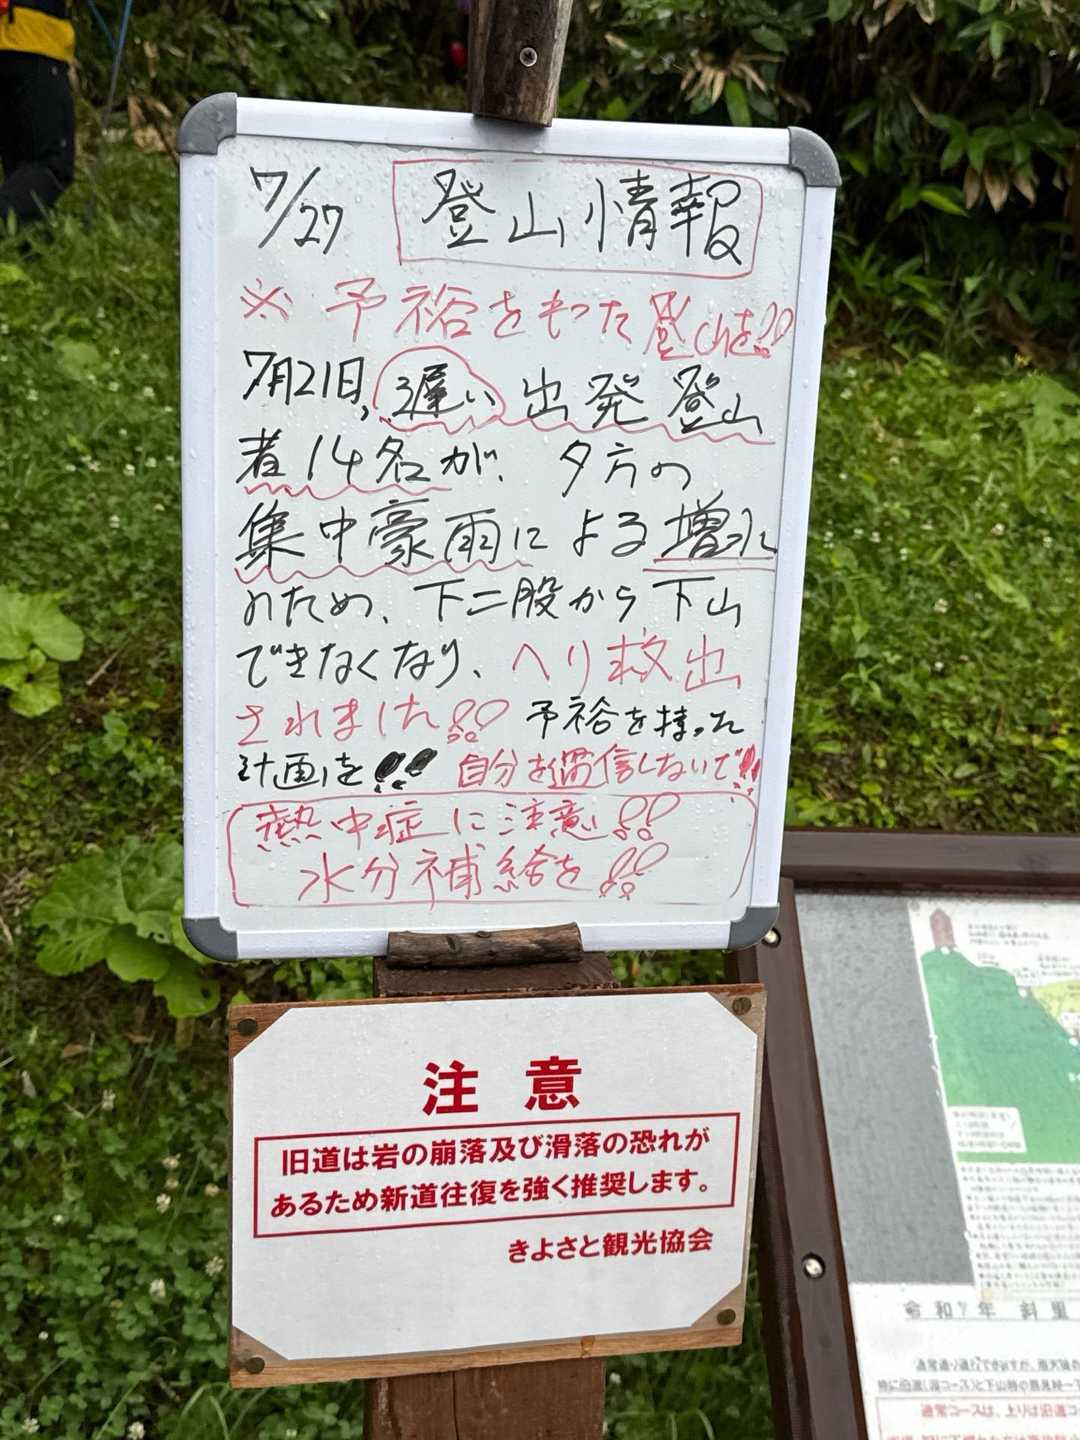 7/27 登山情報
※ 予裕をもった登山を!!
7月21日、遅い出発登山
者14名が、夕方の
集中豪雨による増水
のため、下二股から下山
できなくなり、ヘリ救出
されました!! 予裕を持った
計画を!! 自分を過信しないで!!
熱中症に注意!!
水分補給を!!
注意
旧道は岩の崩落及び滑落の恐れが
あるため新道往復を強く推奨します。
きよさと観光協会
令和7年 斜里
通常コースは、上りは旧道コ